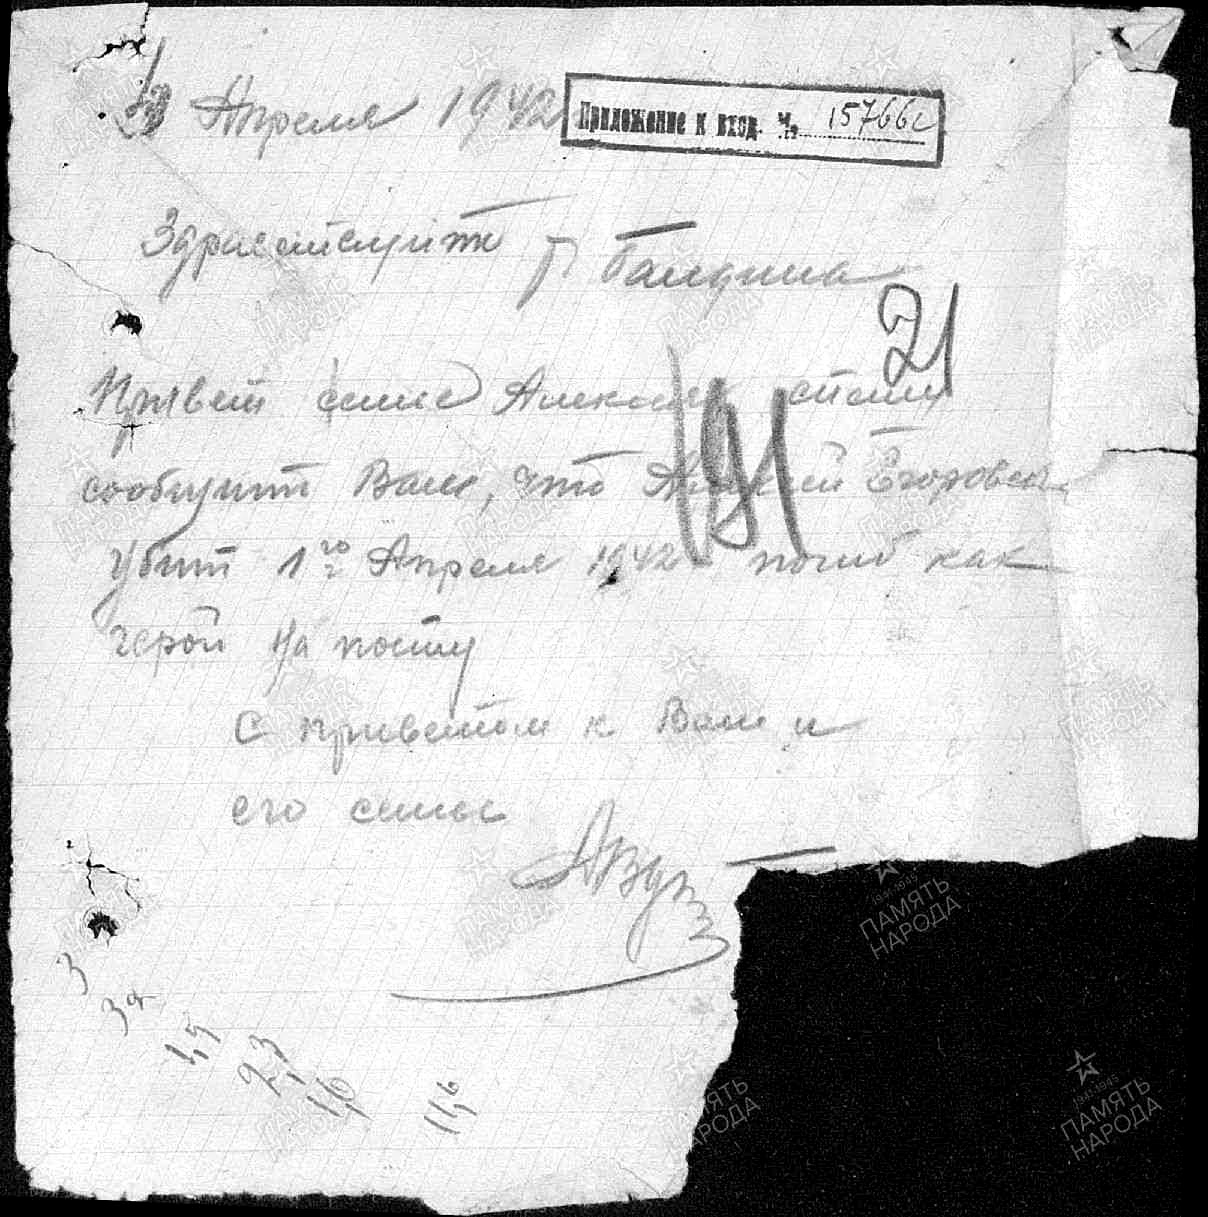 Апреля 1942
Приложение к вход. №. 15766с
Здравствуйте т Галдина
21
Привет семье Алексея спешу
191
сообщить Вам, что Алексей Егорович
Убит 1го Апреля 1942 погиб как
герой на посту
С приветом к Вам и
его семье
3
15
23
16
116
ПАМЯТЬ
НАРОДА